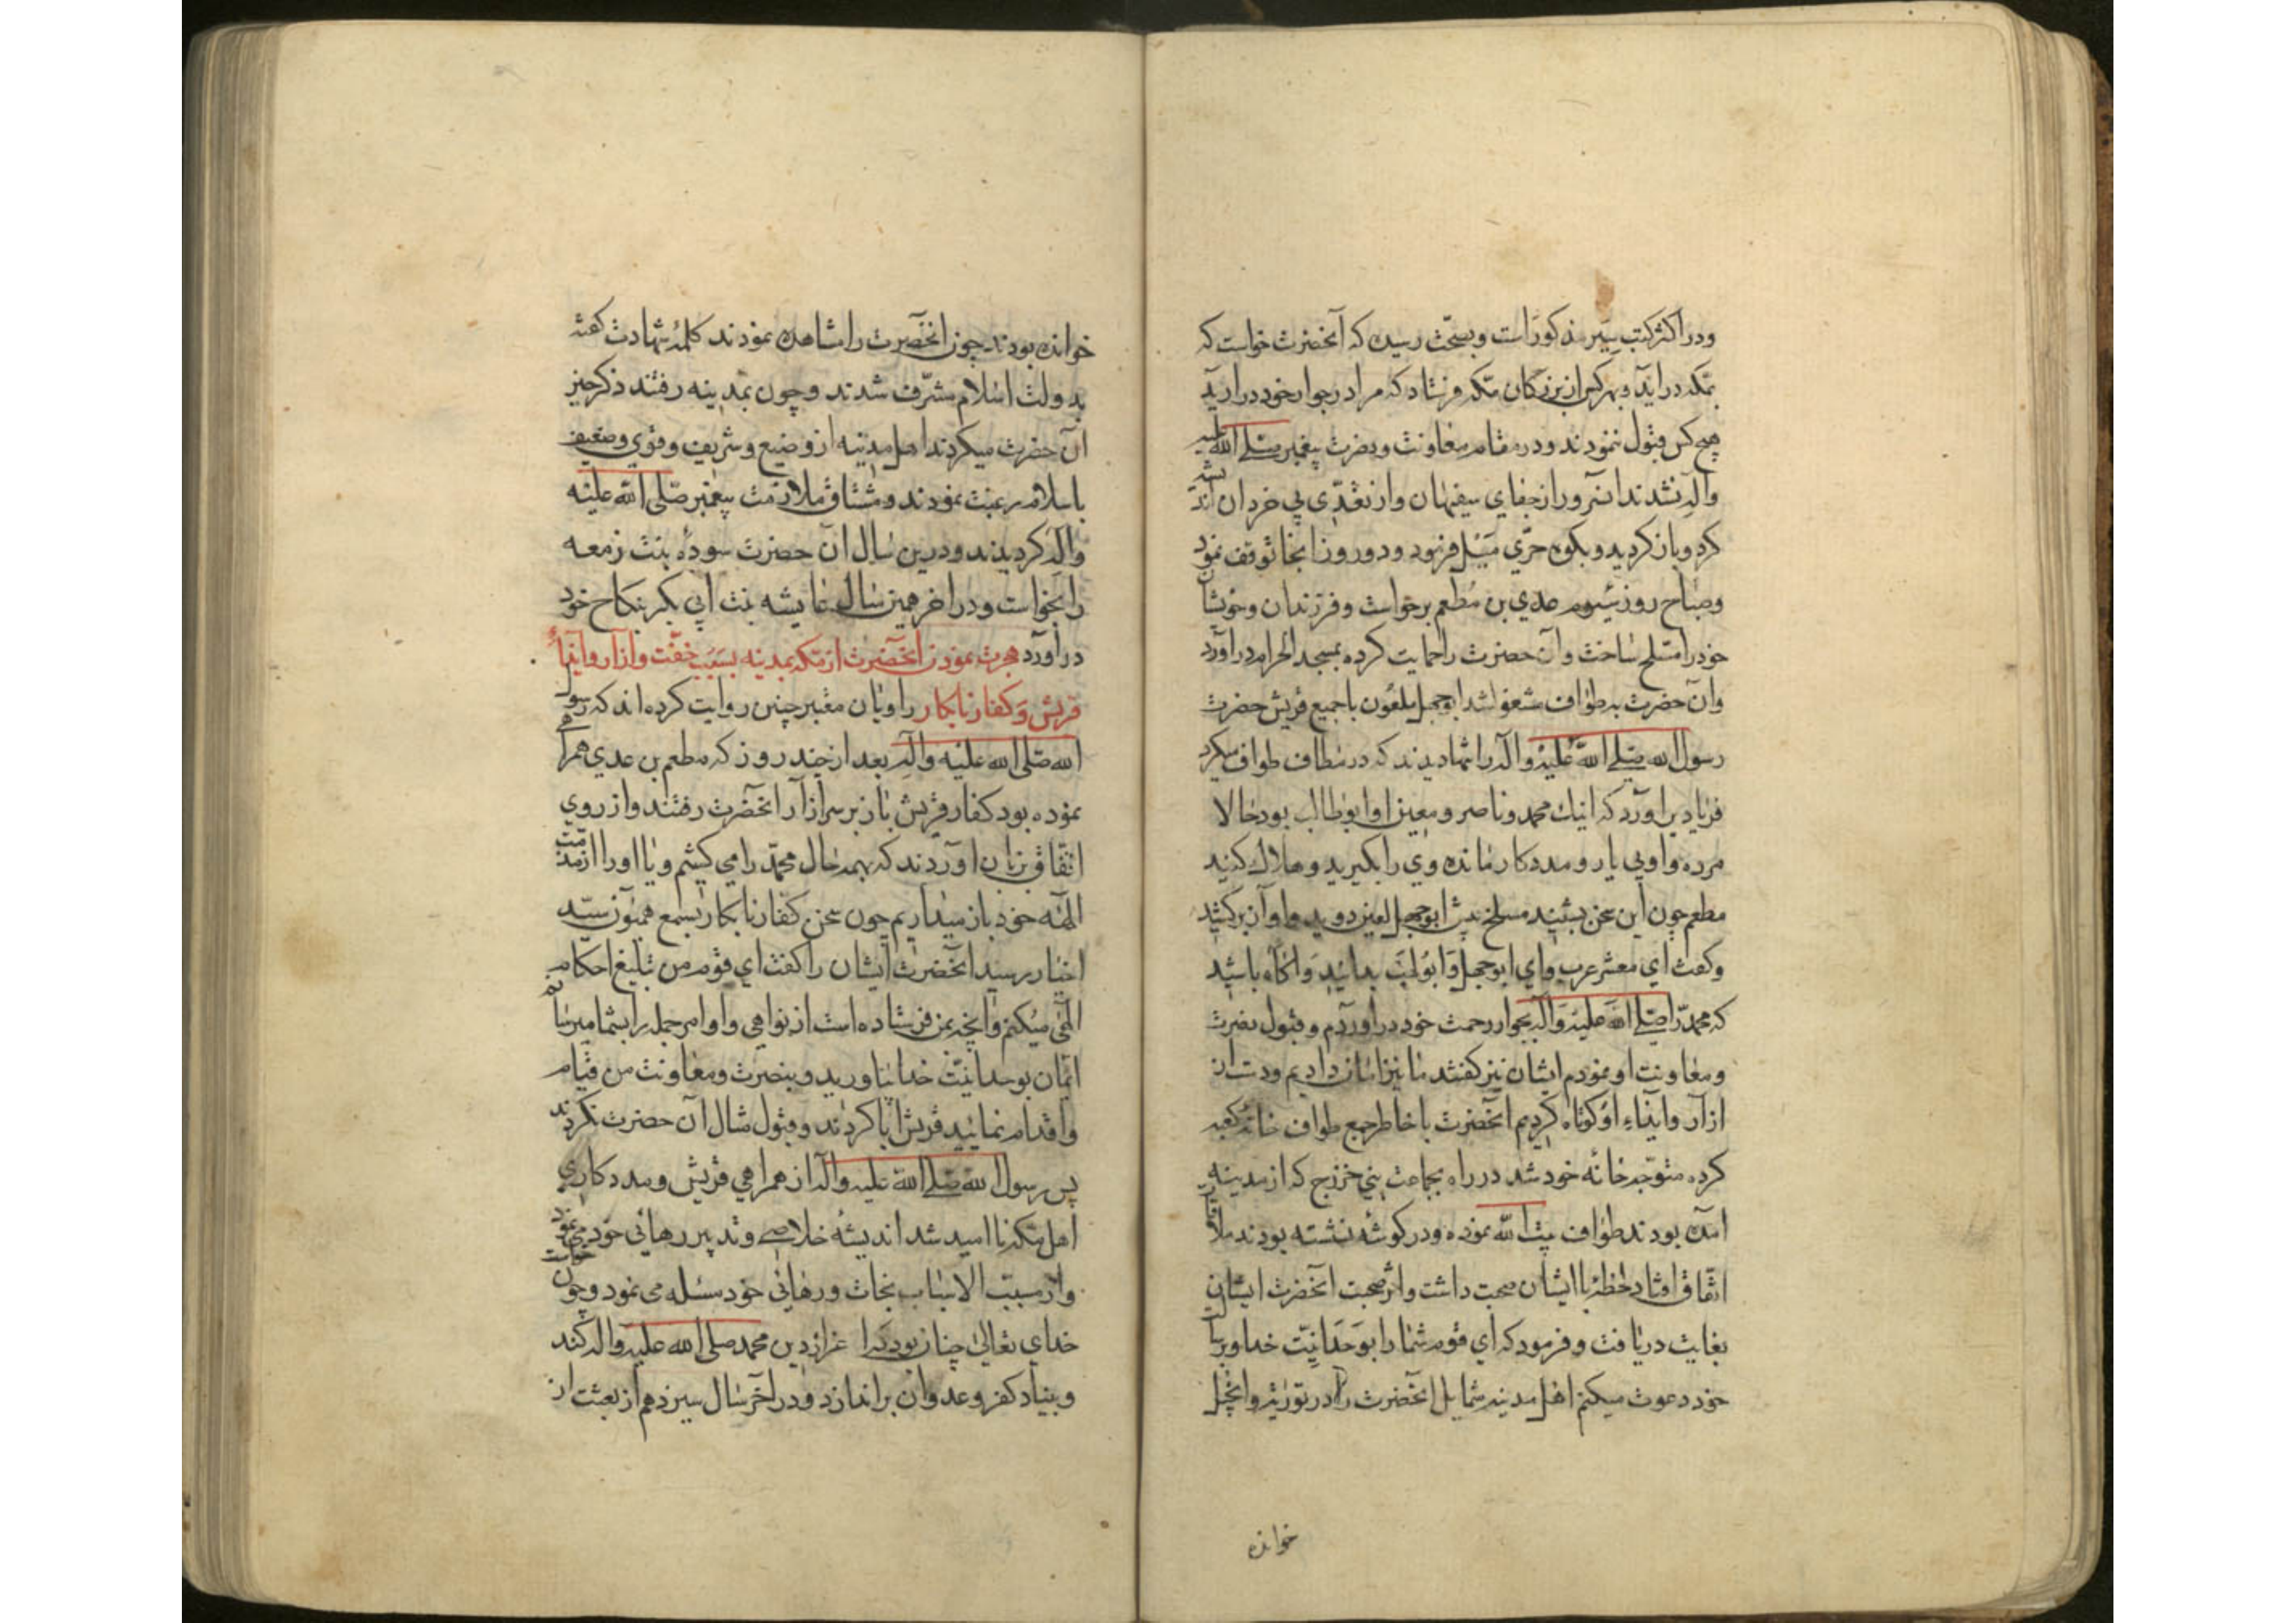 ودر اکثر کتب سیر مذکور است وبصحّت رسیده که آنحضرت خواست که
بمکه در آید وبهر کس از بزرکان مکه فرستاد که مرا در جوار خود در آرید
هیچ کس قبول ننمودند ودر مقام معاونت ونصرت پیغمبر صلی الله علیه
وآله نشدند آنسرور از جفای سفیهان واز تعدّی بی خردان اندیشه
کرد وباز کردید وبکوه حرّی میل فرمود ودو روز انجا توقف نمود
وصباح روز سیوم عدی بن مُطعم برخواست وفرزندان وخویشان
خود را مسلح ساخت وآن حضرت را حمایت کرده بمسجد الحرام در آورد
وآن حضرت به طواف مشغول شد ابوجهل ملعون با جمیع قریش حضرت
رسول الله صلی الله علیه وآله را تنها دیدند که در مطاف طواف میکرد
فریاد بر آورد که اینک محمد وناصر ومعین او ابوطالب بود حالا
مرده واو بی یار ومددکار مانده وی را بکیرید وهلاک کنید
مطعم چون این سخن بشنید مسلح پیش ابوجهل لعین دوید واواز برکشید
وکفت ای معشر عرب وای ابوجهل وابولهب بدانید واکاه باشید
که محمد را صلی الله علیه وآله بجوار رحمت خود در آوردم وقبول نصرت
ومعاونت او نمودم ایشان نیز کفتند ما نیز امان دادیم ودست از
ازار وایذاء او کوتاه کردیم آنحضرت با خاطر جمع طواف خانه کعبه
کرده متوجه خانه خود شد در راه بجماعت بنی خزرج که از مدینه
امده بودند طواف بیت الله نموده ودر کوشه نشسته بودند ملاقات
اتفاق افتاد لحظه با ایشان صحبت داشت واثر صحبت آنحضرت ایشان
بغایت دریافت وفرمود که ای قوم شما را بوحدانیّت خدا وبرسالت
خود دعوت میکنم اهل مدینه شمایل آنحضرت را در توریة وانجیل
خوانده
خوانده بودند چون آنحضرت را مشاهده نمودند کلمه شهادت کفته
بدولت اسلام مشرّف شدند وچون بمدینه رفتند ذکر خیر
آن حضرت میکردند اهل مدینه از وضیع وشریف وقوی وضعیف
باسلام رغبت نمودند ومشتاق ملازمت پیغمبر صلی الله علیه
وآله کردیدند ودرین سال آن حضرت سوده بنت زمعه
را بخواست ودر اخر همین سال عایشه بنت ابی بکر بنکاح خود
در آورد هجرت نمودن آنحضرت از مکه بمدینه بسبب خفّت وآزار وایذاء
قریش وکفار نابکار راویان معتبر چنین روایت کرده اند که رسول
الله صلی الله علیه وآله بعد از چند روز که مطعم بن عدی همراهی
نموده بود کفار قریش باز بر سر ازار آنحضرت رفتند واز روی
اتفاق بزبان آوردند که بهمه حال محمد را می کشیم ویا او را از مذمّت
الهه خود باز میداریم چون سخن کفار نابکار بسمع همیون سیّد
اخیار رسید آنحضرت ایشان را کفت ای قوم من تبلیغ احکام
الهی میکنم وآنچه بمن فرستاده است از نواهی واوامر جمله را بشما میرسانم
ایمان بوحدانیّت خدا بیاورید وبنصرت ومعاونت من قیام
واقدام نمایید قریش ابا کردند وقبول مثال آن حضرت نکردند
پس رسول الله صلی الله علیه وآله از همراهی قریش ومددکاری
اهل مکه نا امید شد اندیشه خلاصی وتدبیر رهائی خود می نمود
واز مسبّب الاسباب نجات ورهائی خود مسئله می نمود وچون خواست
خدای تعالی چنان بود که اعزاز دین محمد صلی الله علیه وآله کند
وبنیاد کفر وعدوان بر اندازد ودر آخر سال سیزدهم از بعثت از